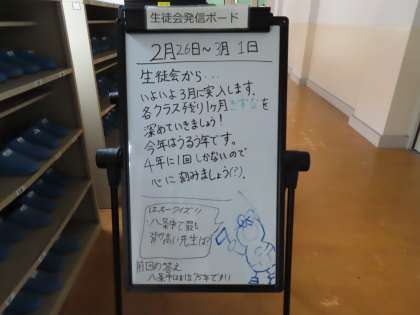 生徒会発信ボード
2月26日～3月1日
生徒会から…
いよいよ3月に突入します。
各クラス残り1ヶ月きずなを
深めていきましょう！
今年はうるう年です。
4年に1回しかないので
心に刻みましょう(?)。
八条中で最も
背の高い先生は?
前回の答え
八条中は75年です!!